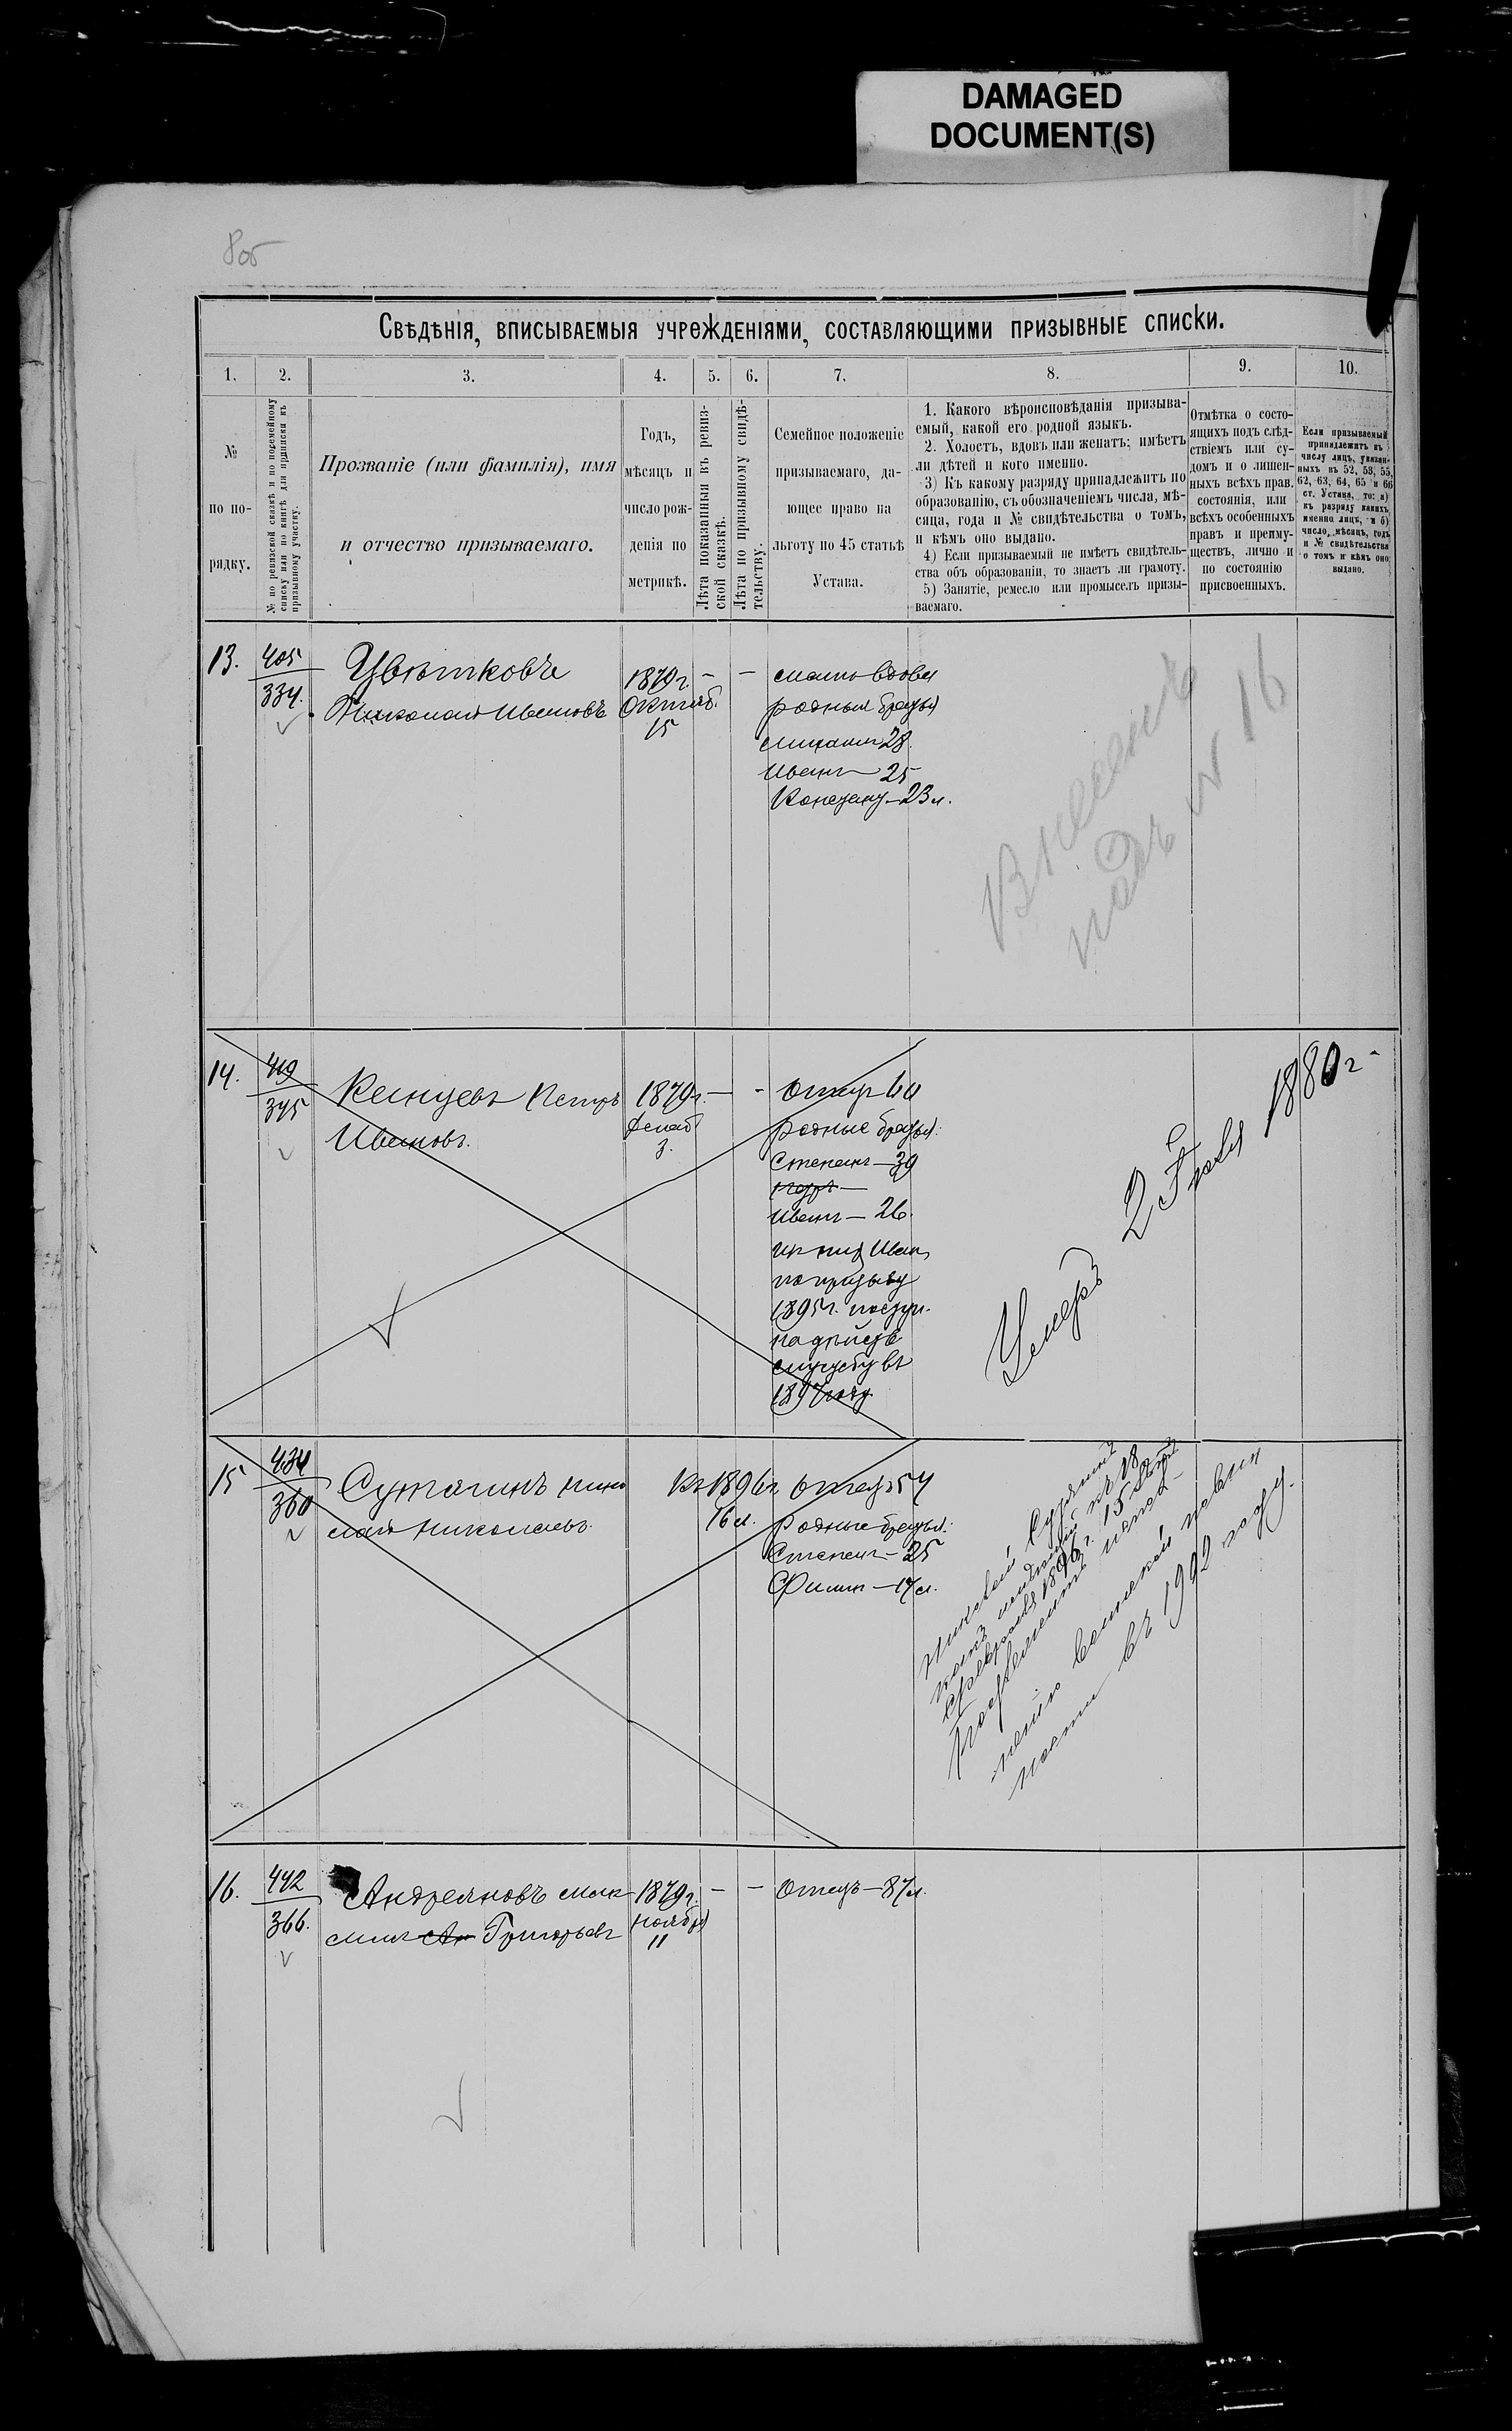 DAMAGED
DOCUMENT(S)
8об
Свѣдѣнія, вписываемыя учрежденіями, составляющими призывные списки.
1.
2.
3.
4.
5.
6.
7.
8.
9.
10.
№
по по-
рядку.
№ по ревизской сказкѣ и по посемейному
списку или по книгѣ для приписки къ
призывному участку.
Прозваніе (или фамилія), имя
и отчество призываемаго.
Годъ,
мѣсяцъ и
число рож-
денія по
метрикѣ.
Лѣта показанныя въ ревиз-
ской сказкѣ.
Лѣта по призывному свидѣ-
тельству.
Семейное положеніе
призываемаго, да-
ющее право на
льготу по 45 статьѣ
Устава.
1. Какого вѣроисповѣданія призыва-
емый, какой его родной языкъ.
2. Холостъ, вдовъ или женатъ; имѣетъ
ли дѣтей и кого именно.
3) Къ какому разряду принадлежитъ по
образованію, съ обозначеніемъ числа, мѣ-
сяца, года и № свидѣтельства о томъ,
и кѣмъ оно выдано.
4) Если призываемый не имѣетъ свидѣтель-
ства объ образованіи, то знаетъ ли грамоту.
5) Занятіе, ремесло или промыселъ призы-
ваемаго.
Отмѣтка о состо-
ящихъ подъ слѣд-
ствіемъ или су-
домъ и о лишен-
ныхъ всѣхъ прав.
состоянія, или
всѣхъ особенныхъ
правъ и преиму-
ществъ, лично и
по состоянію
присвоенныхъ.
Если призываемый
принадлежитъ къ
числу лицъ, указан-
ныхъ въ 52, 53, 55,
62, 63, 64, 65 и 66
ст. Устава, то: а)
къ разряду какихъ
именно лицъ, и б)
число, мѣсяцъ, годъ
и № свидѣтельства
о томъ и кѣмъ оно
выдано.
13.
405
334.
Цвѣтковъ
Николай Ивановъ
1879 г.
Октяб.
15
-
-
мать вдова
родныя братья
Михаилъ 28.
Иванъ — 25
Констант — 23 л.
Внесенъ
подъ № 16
14.
419
345
Канцевъ Петръ
Ивановъ.
1879 г.
Декаб
3.
-
-
Отецъ 60
родные братья:
Степанъ — 39
Иванъ — 26.
из них Иван
по призыву
1895 г. поступ.
на дѣйств
службу въ
1897 году
Умеръ 2 Июля 1880 г.
15
434
360
Сутягинъ Нико
лай Николаевъ.
Въ 1896 г.
16 л.
Отецъ 54
Родные братья:
Степанъ — 25
Филип — 17 л.
Николай Сутягинъ
1896 г. 15 лѣтъ
воинской повин
ности въ 1902 году.
16.
442
366.
Андреяновъ Мак
симъ Григорьевъ
1879 г.
ноября
11
-
-
Отецъ — 87 л.